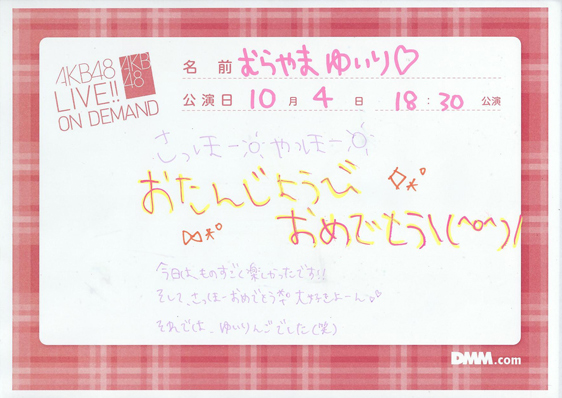 AKB48
LIVE!!
ON DEMAND
AKB
48
名 前 むらやま ゆいり♡
公演日 10 月 4 日 18:30 公演
さっほー☼やっほー☼
おたんじょうび
おめでとう\(^o^)/
今日は、ものすごく楽しかったです!!
そして、さっほーおめでとう 大好きよーん♡
それでは、ゆいりんごでした(笑)
DMM.com